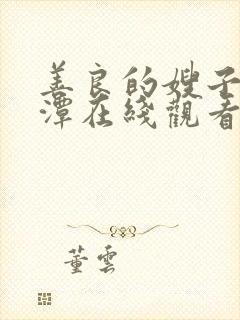 善良的嫂子
潭在綫觀看
董雲